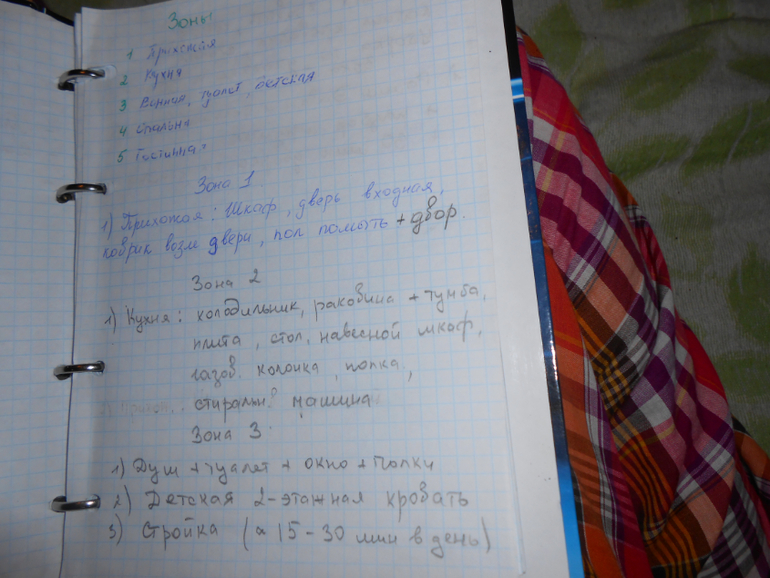 Зоны
1 Прихожая
2 Кухня
3 Ванная, туалет, детская
4 Спальня
5 Гостинная
Зона 1
1) Прихожая: Шкаф, дверь входная,
коврик возле двери, пол помыть + двор.
Зона 2
1) Кухня: холодильник, раковина + тумба,
плита, стол, навесной шкаф,
газов. колонка, полка,
стиральн. машина
Зона 3
1) Душ + туалет + окно + полки
2) Детская 2-этажная кровать
3) Стройка (≈ 15-30 мин в день)